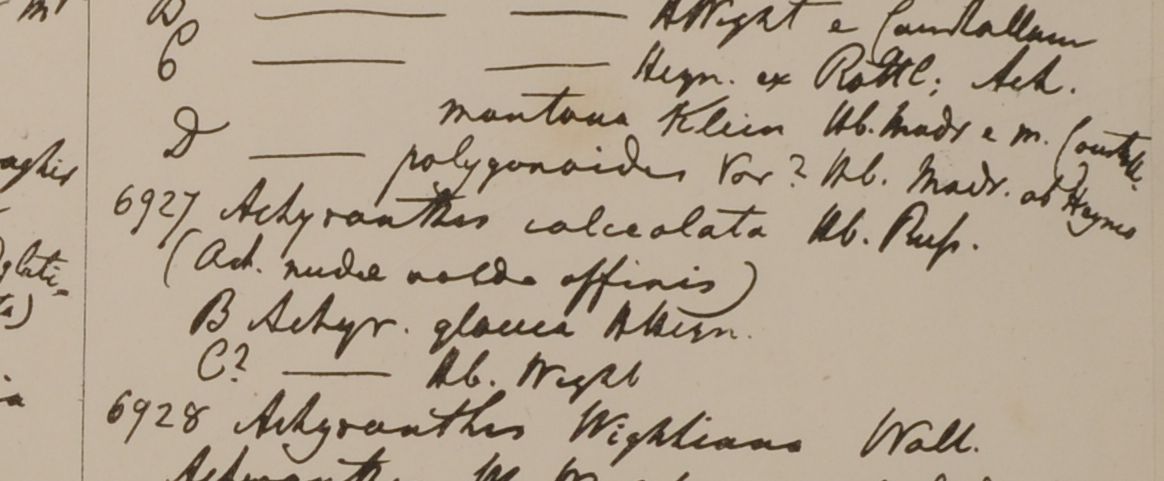 B ——— ——— HWight e Courtallum
C ——— ——— Heyn. ex Rottl; Ach.
montana Klein Hb. Madr e m. Courtall.
D ——— polygonoides Var? Hb. Madr. ab Heyneo
6927 Achyranthes calceolata Hb. Russ.
(Ach. nudae valde affinis)
B Achyr. glauca HHeyn.
C? ——— Hb. Wight
6928 Achyranthes Wightiana Wall.